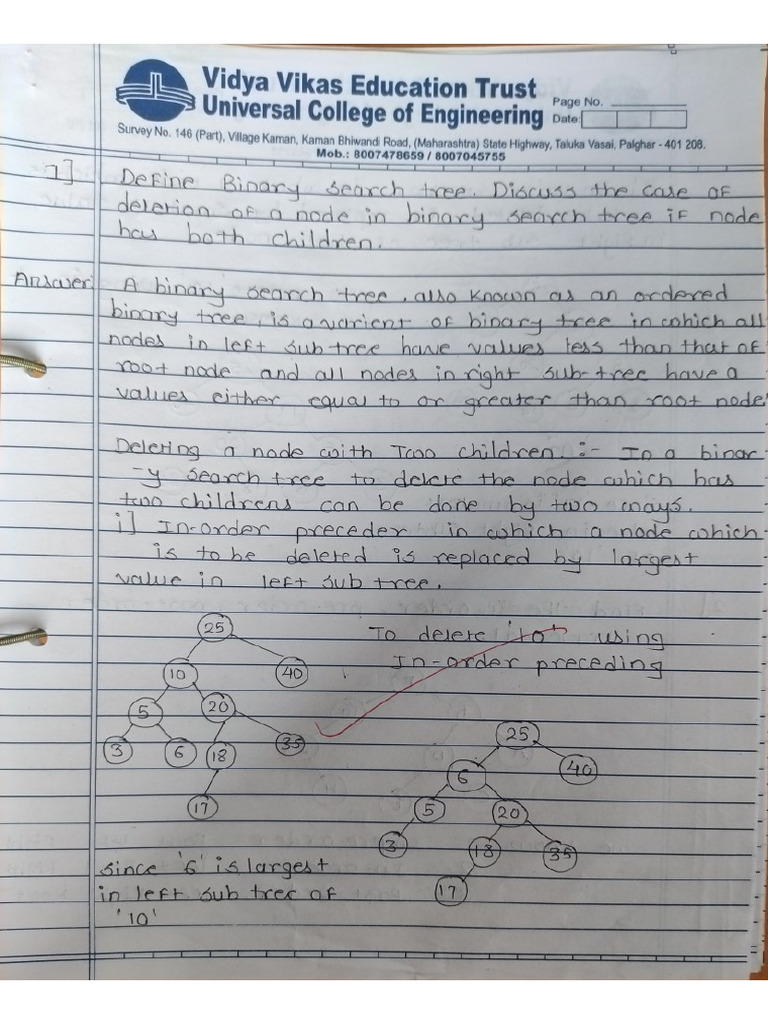 Vidya Vikas Education Trust
Universal College of Engineering
Page No.
Date:
Survey No. 146 (Part), Village Kaman, Kaman Bhiwandi Road, (Maharashtra) State Highway, Taluka Vasai, Palghar - 401 208.
Mob.: 8007478659 / 8007045755
1] Define Binary search tree. Discuss the case of
deletion of a node in binary search tree if node
has both children.
Answer: A binary search tree, also known as an ordered
binary tree, is a varient of binary tree in which all
nodes in left sub tree have values less than that of
root node and all nodes in right sub-tree have a
values either equal to or greater than root node
Deleting a node with Two children :- In a binar
-y search tree to delete the node which has
two childrens can be done by two ways.
i] In-order preceder in which a node which
is to be deleted is replaced by largest
value in left sub tree.
To delete '10' using
In-order preceding
25
10
40
5
20
3
6
18
35
17
25
6
40
5
20
3
18
35
17
since '6' is largest
in left sub tree of
'10'